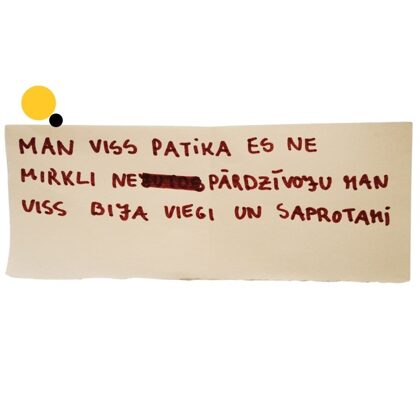 MAN VISS PATIKA ES NE
MIRKLI NE PĀRDZĪVOJU MAN
VISS BIJA VIEGI UN SAPROTAMI